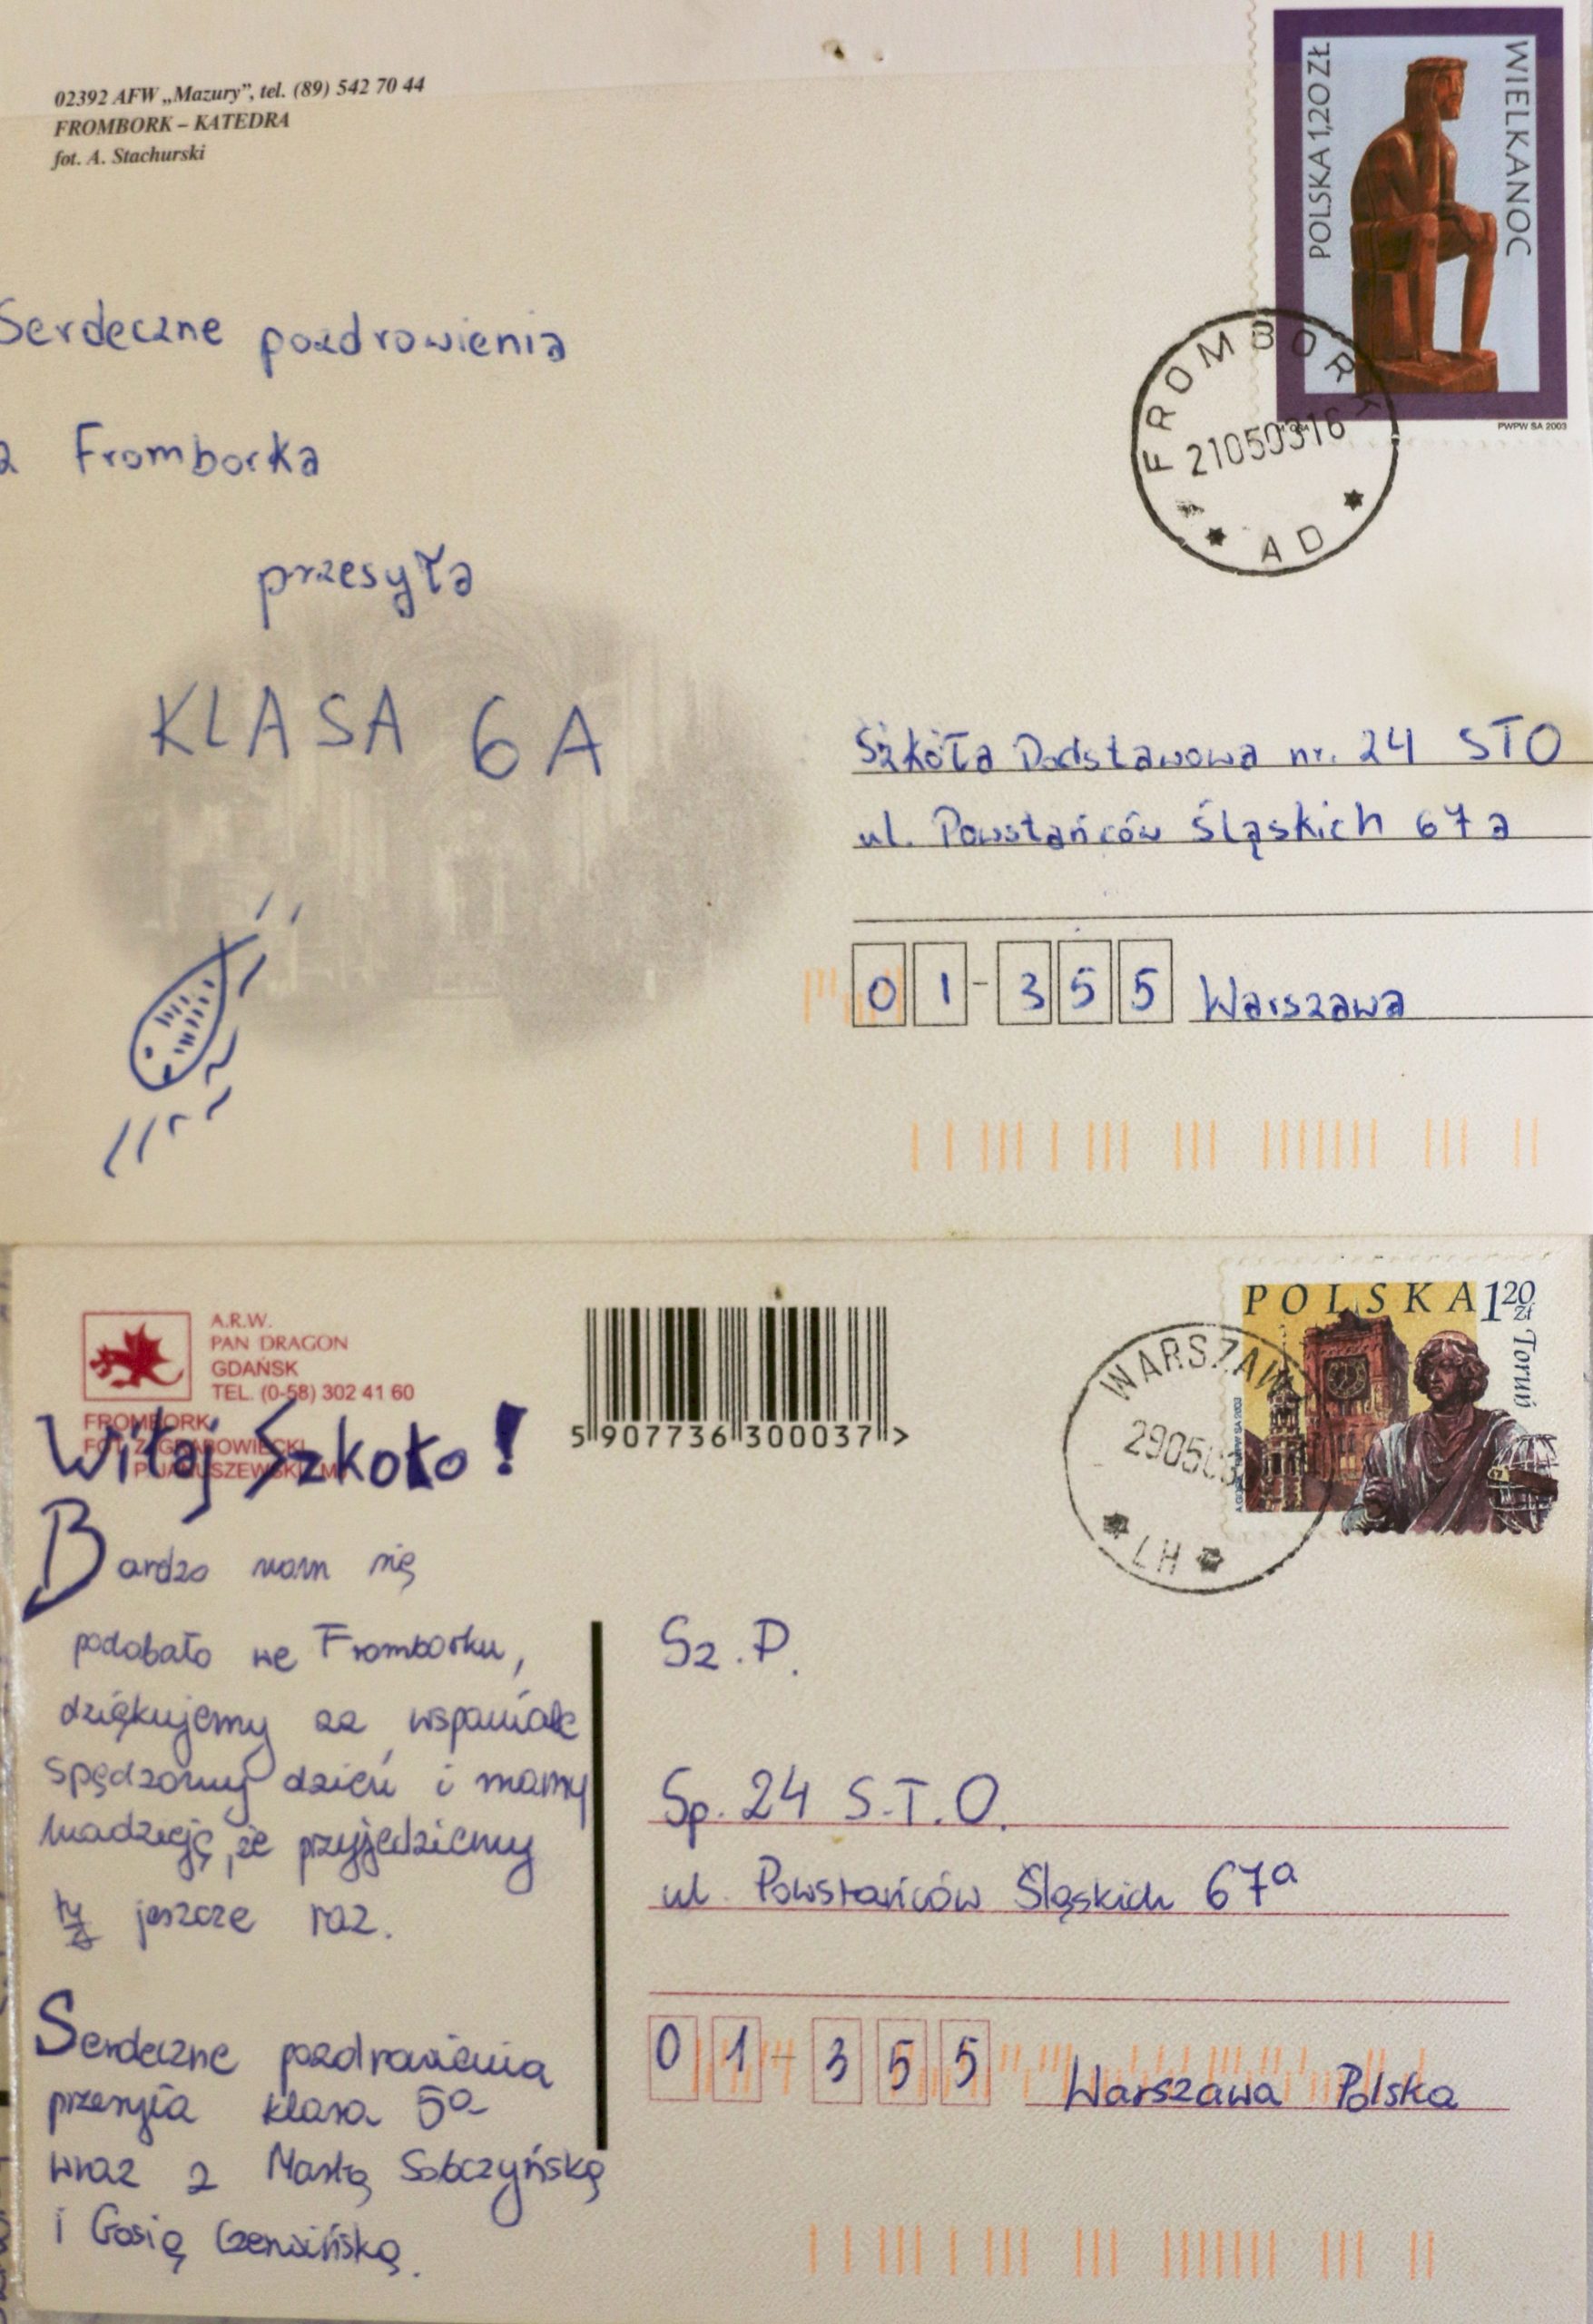 02392 AFW „Mazury”, tel. (89) 542 70 44
FROMBORK – KATEDRA
fot. A. Stachurski
POLSKA 1,20 ZŁ
WIELKANOC
PWPW SA 2003
FROMBORK
21050316
AD
Serdeczne pozdrowienia
z Fromborka
przesyła
KLASA 6A
Szkoła Podstawowa nr. 24 STO
ul. Powstańców Śląskich 67a
01-355 Warszawa
A.R.W.
PAN DRAGON
GDAŃSK
TEL. (0-58) 302 41 60
FROMBORK
5 907736 300037 >
POLSKA 120 zł
Toruń
WARSZAW
29050
LH
Witaj Szkoło!
Bardzo nam się
podobało we Fromborku,
dziękujemy za wspaniale
spędzony dzień i mamy
nadzieję, że przyjedziemy
tu jeszcze raz.
Serdeczne pozdrowienia
przesyła klasa 5a
wraz z Martą Sobczyńską
i Gosią Czerwińską.
Sz. P.
Sp. 24 S.T.O.
ul. Powstańców Śląskich 67a
01-355 Warszawa Polska